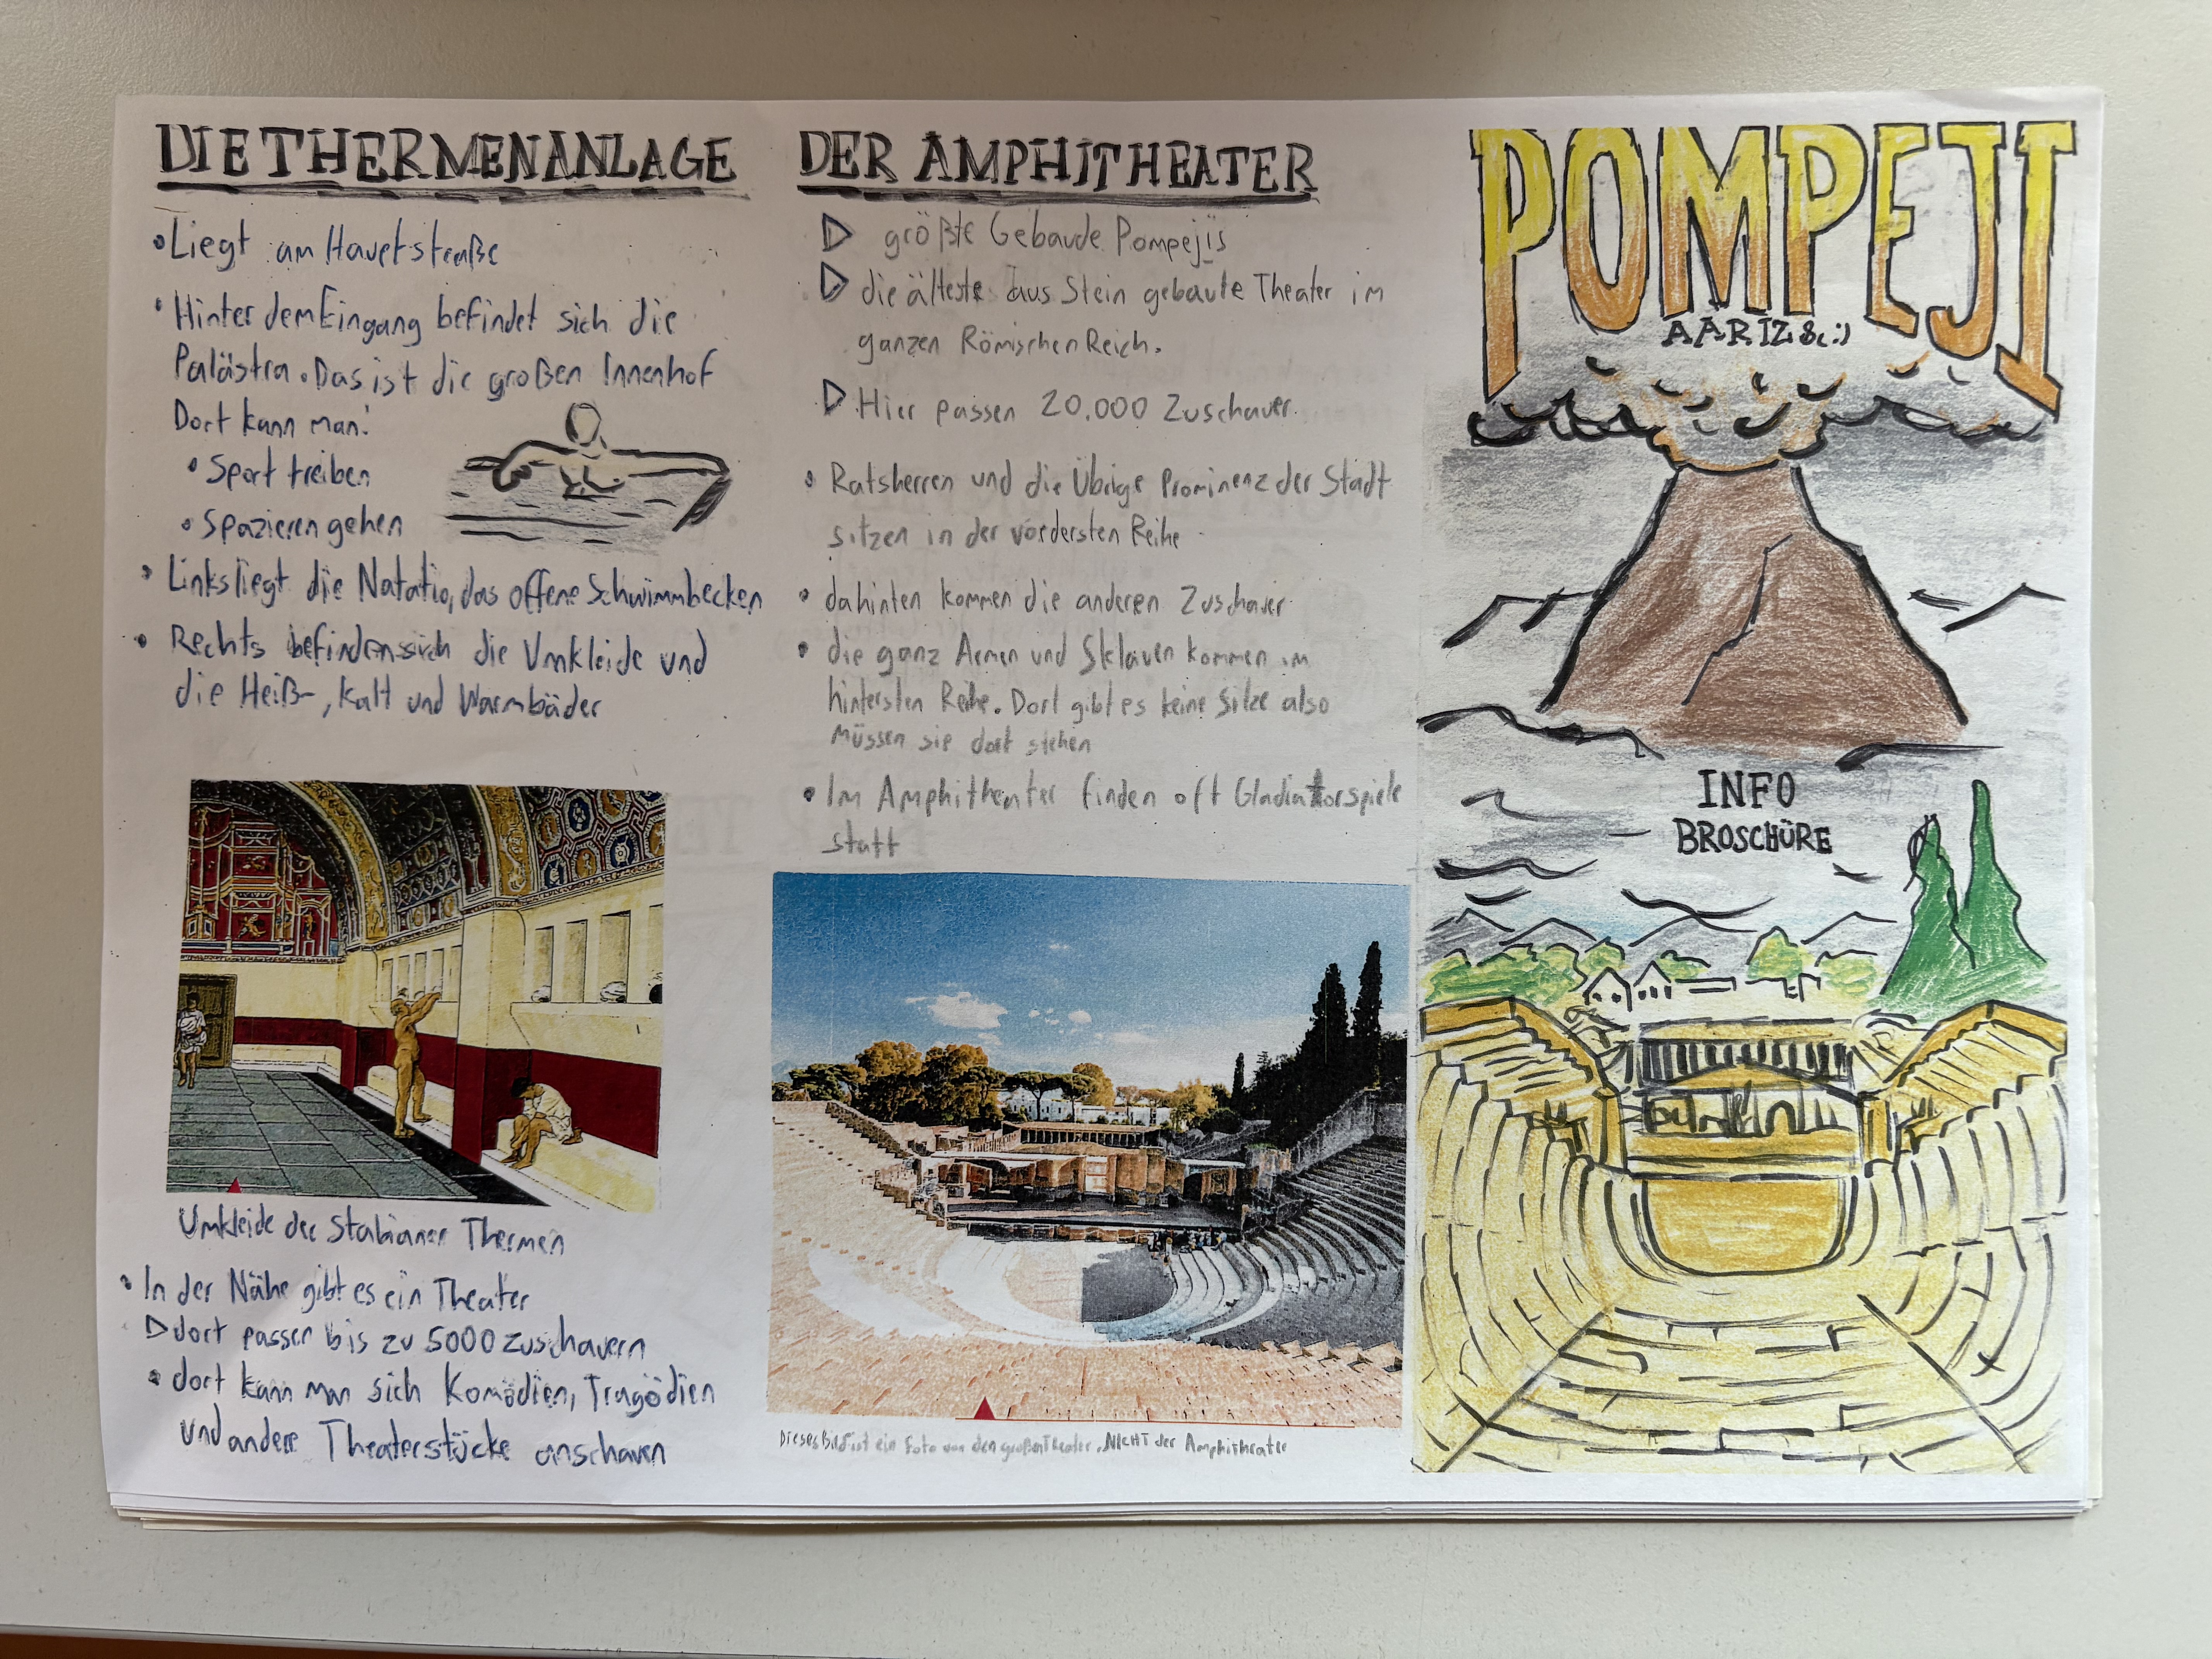 DIE THERMENANLAGE
• Liegt am Hauptstraße
• Hinter dem Eingang befindet sich die
Palästra. Das ist die großen Innenhof
Dort kann man:
• Sport treiben
• Spazieren gehen
• Links liegt die Natatio, das offene Schwimmbecken
• Rechts befinden sich die Umkleide und
die Heiß-, Kalt und Warmbäder
Umkleide der Stabianer Thermen
• In der Nähe gibt es ein Theater
▷ dort passen bis zu 5000 zuschauern
• dort kann man sich Komödien, Tragödien
und andere Theaterstücke anschauen
DER AMPHITHEATER
▷ größte Gebaude Pompejis
▷ die älteste aus Stein gebaute Theater im
ganzen Römischen Reich.
▷ Hier passen 20.000 Zuschauer.
• Ratsherren und die Übrige Prominenz der Stadt
sitzen in der vordersten Reihe
• dahinten kommen die anderen Zuschauer
• die ganz Armen und Sklaven kommen im
hintersten Reihe. Dort gibt es keine Sitze also
müssen sie dort stehen
• Im Amphitheater finden oft Gladiatorspiele
statt
Dieses Bild ist ein Foto von den großen Theater, NICHT der Amphitheater
POMPEJI
AARIZ 8c :)
INFO
BROSCHÜRE